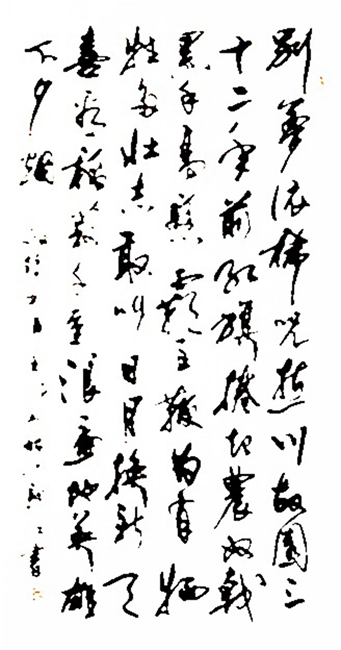 别夢依稀呪逝川故園三
十二年前红旗捲起農奴戟
黑手高懸霸主鞭为有犧
牲多壮志敢叫日月換新天
喜看稻菽千重浪遍地英雄
下夕煙 書